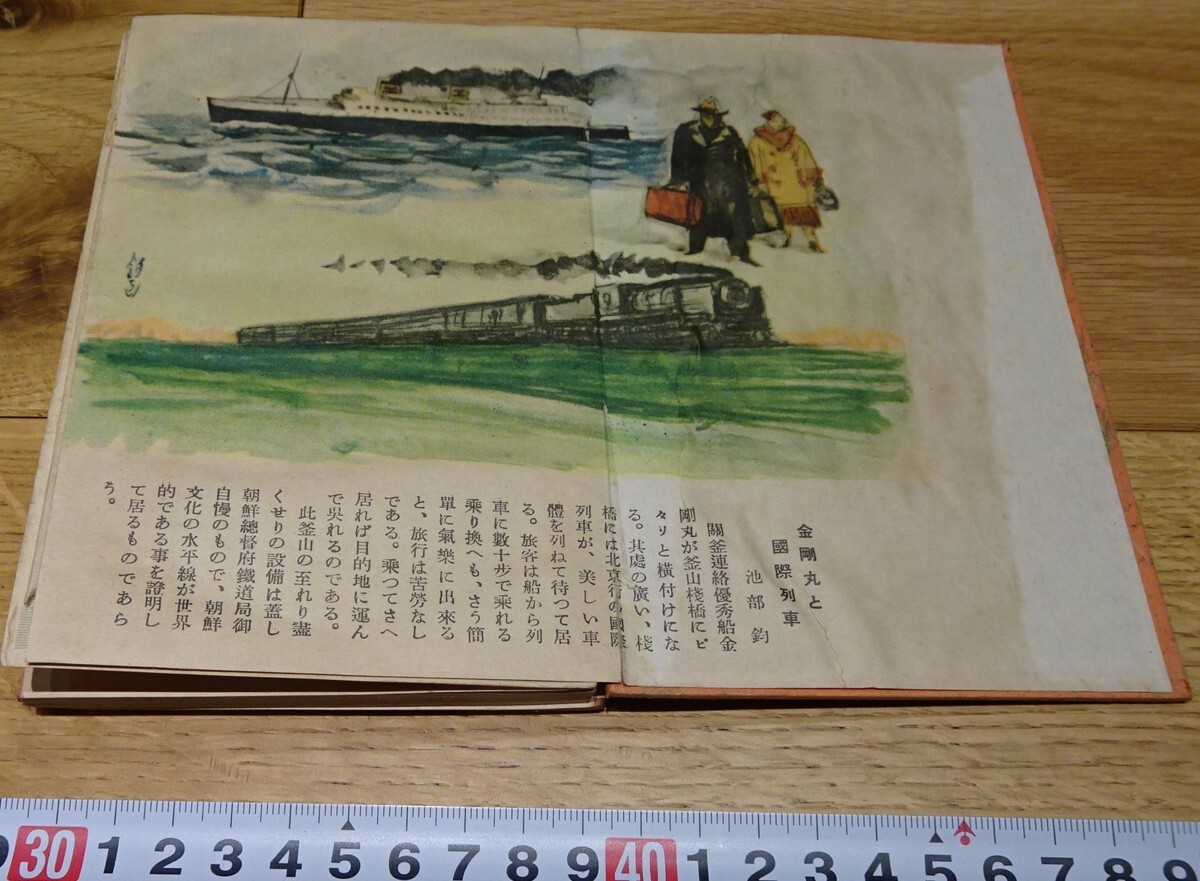 金剛丸と
國際列車
池部 鈞
關釜連絡優秀船金
剛丸が釜山棧橋にピ
タリと橫付けにな
る。其處の廣い、棧
橋には北京行の國際
列車が、美しい車
體を列ねて待つて居
る。旅客は船から列
車に數十步で乘れる
乘り換へも、さう簡
單に氣樂に出來る
と、旅行は苦勞なし
である。乘つてさへ
居れば目的地に運ん
で吳れるのである。
此釜山の至れり盡
くせりの設備は蓋し
朝鮮總督府鐵道局御
自慢のもので、朝鮮
文化の水平線が世界
的である事を證明し
て居るものであら
う。
30 1 2 3 4 5 6 7 8 9 40 1 2 3 4 5 6 7 8 9